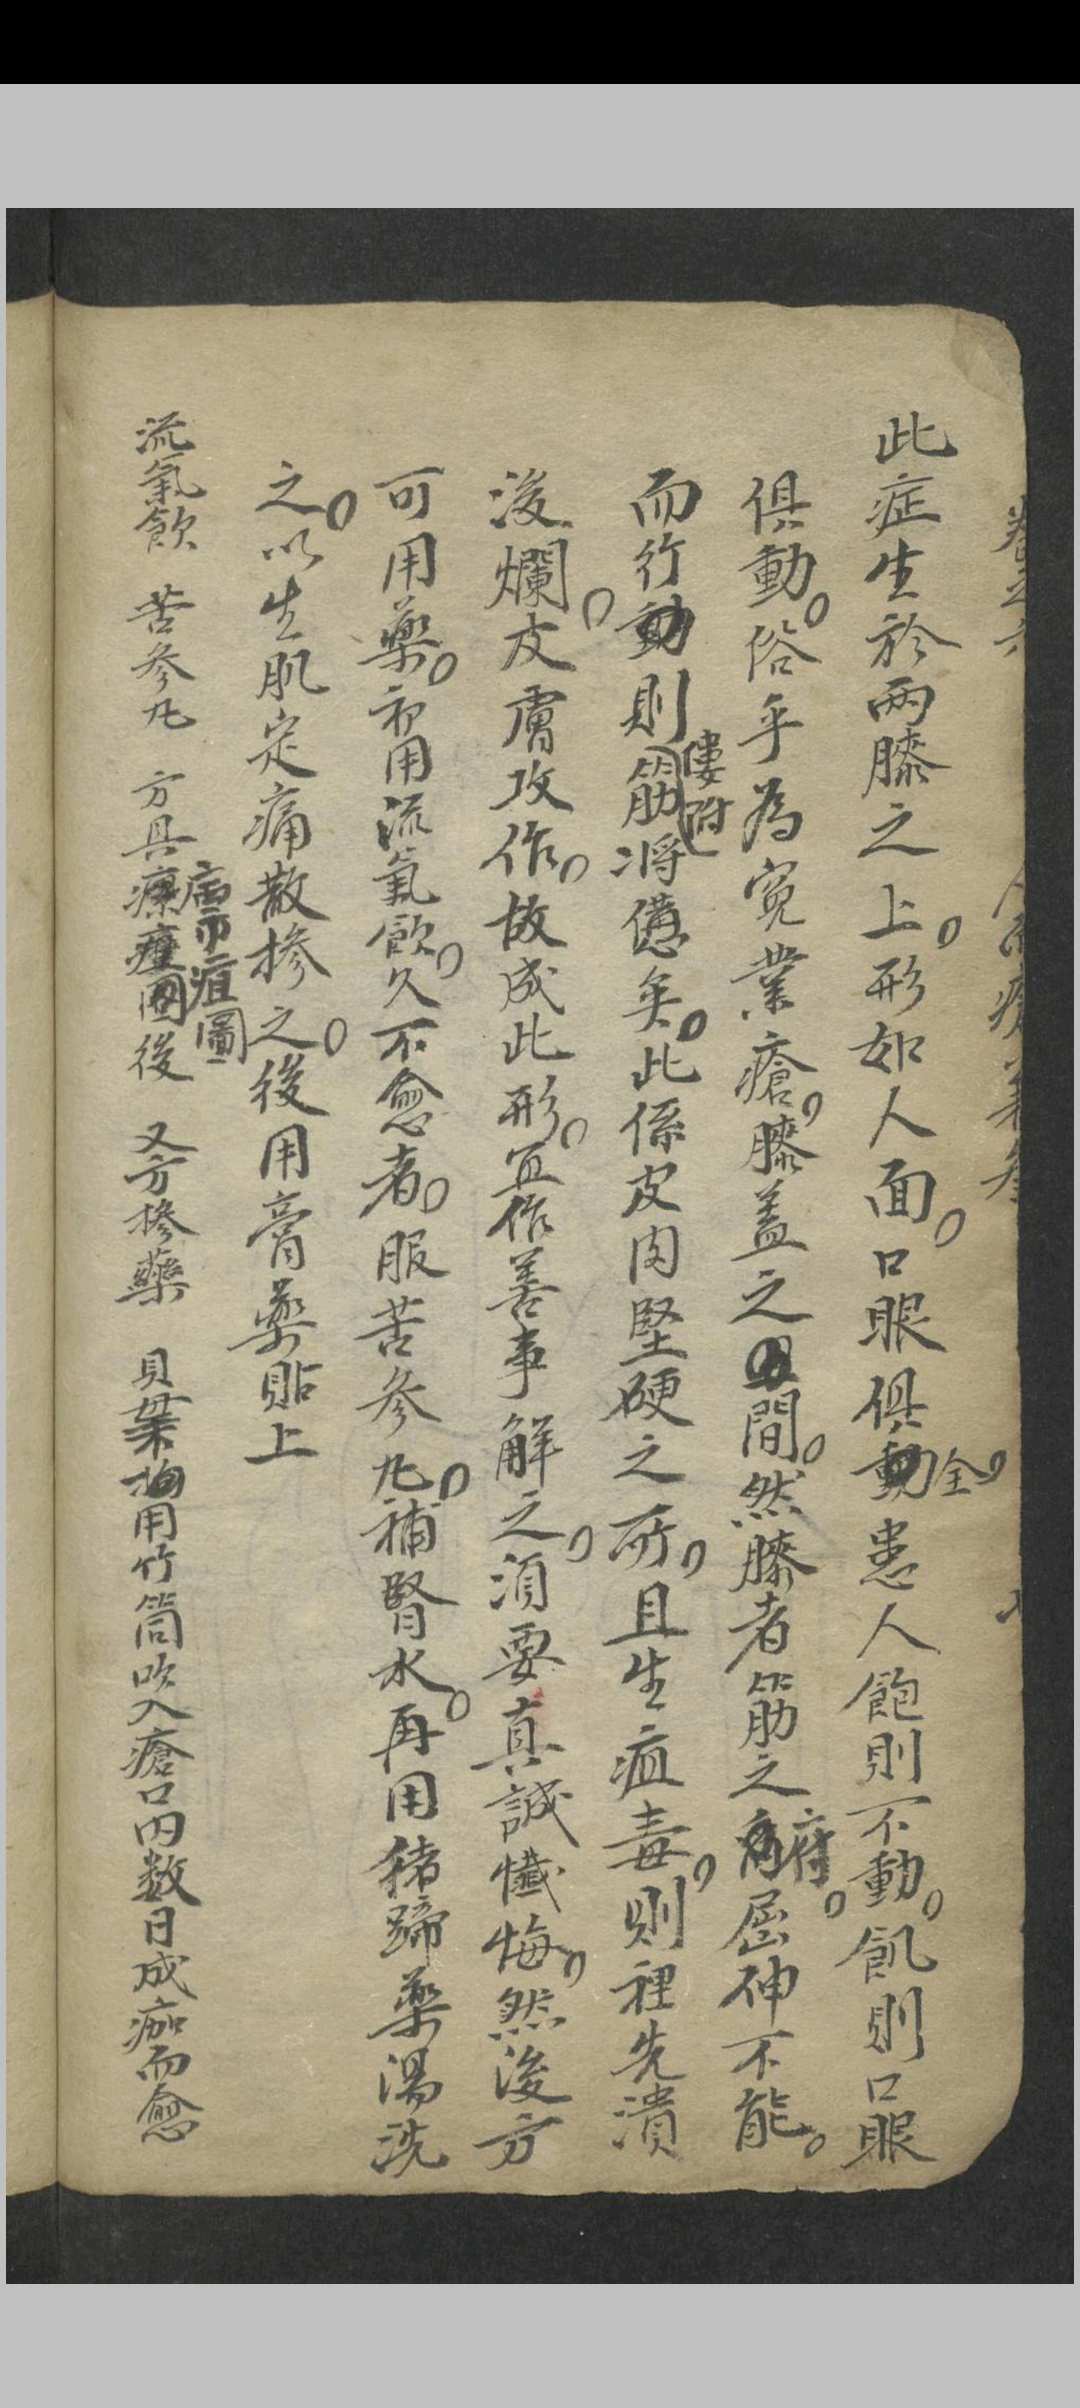 此症生於两膝之上。形如人面。口眼俱動全。患人飽則不動。飢則口眼
俱動。俗乎為寃業瘡。膝盖之間。然膝者筋之府。屈伸不能。
而行動則僂附筋将憊矣。此係皮肉堅硬之所。且生疽毒。則裡先潰
後爛。皮膚攻作。故成此形。宜作善事解之。須要真誠懺悔。然後方
可用藥。初用流氣飲。久不愈者。服苦参丸。補腎水。再用猪蹄藥湯洗
之。以生肌定痛散掺之。後用膏藥貼上
流氣飲 苦参丸 方具瘭疽圖後 又方掺藥 貝葉 用竹筒吹入瘡口内数日成痂而愈